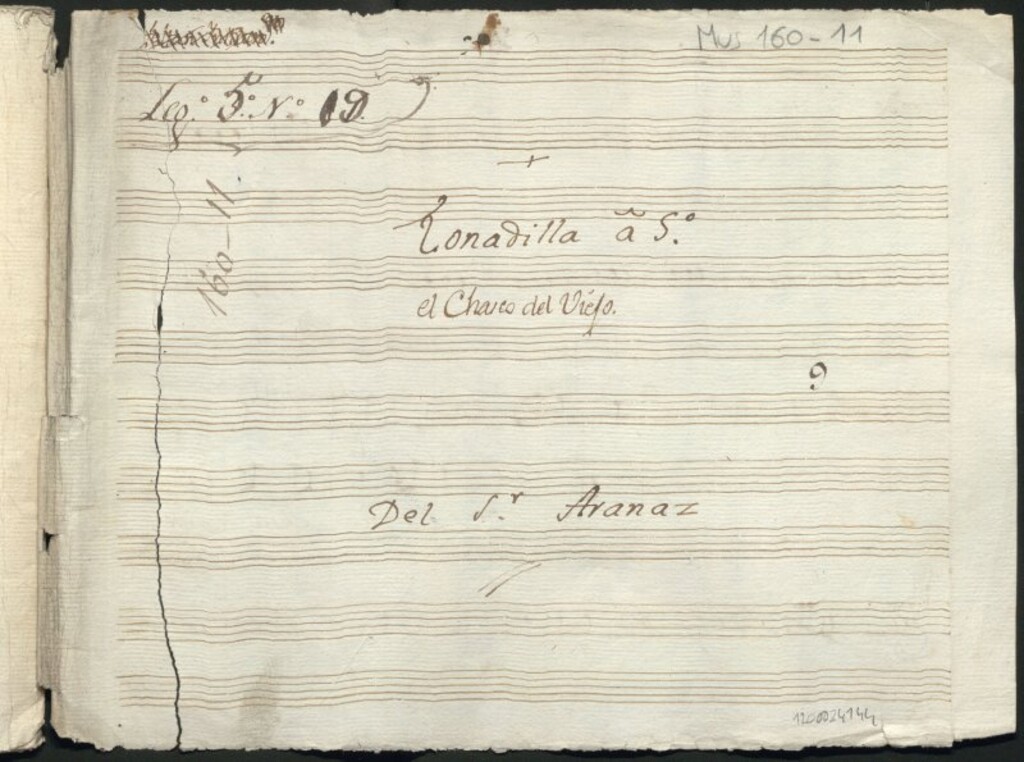 Mus 160-11
Leg.º 5.º N.º 19.
160-11.
Tonadilla â 5.º
el Charco del Viejo.
9
Del S.r Aranaz
1200024144